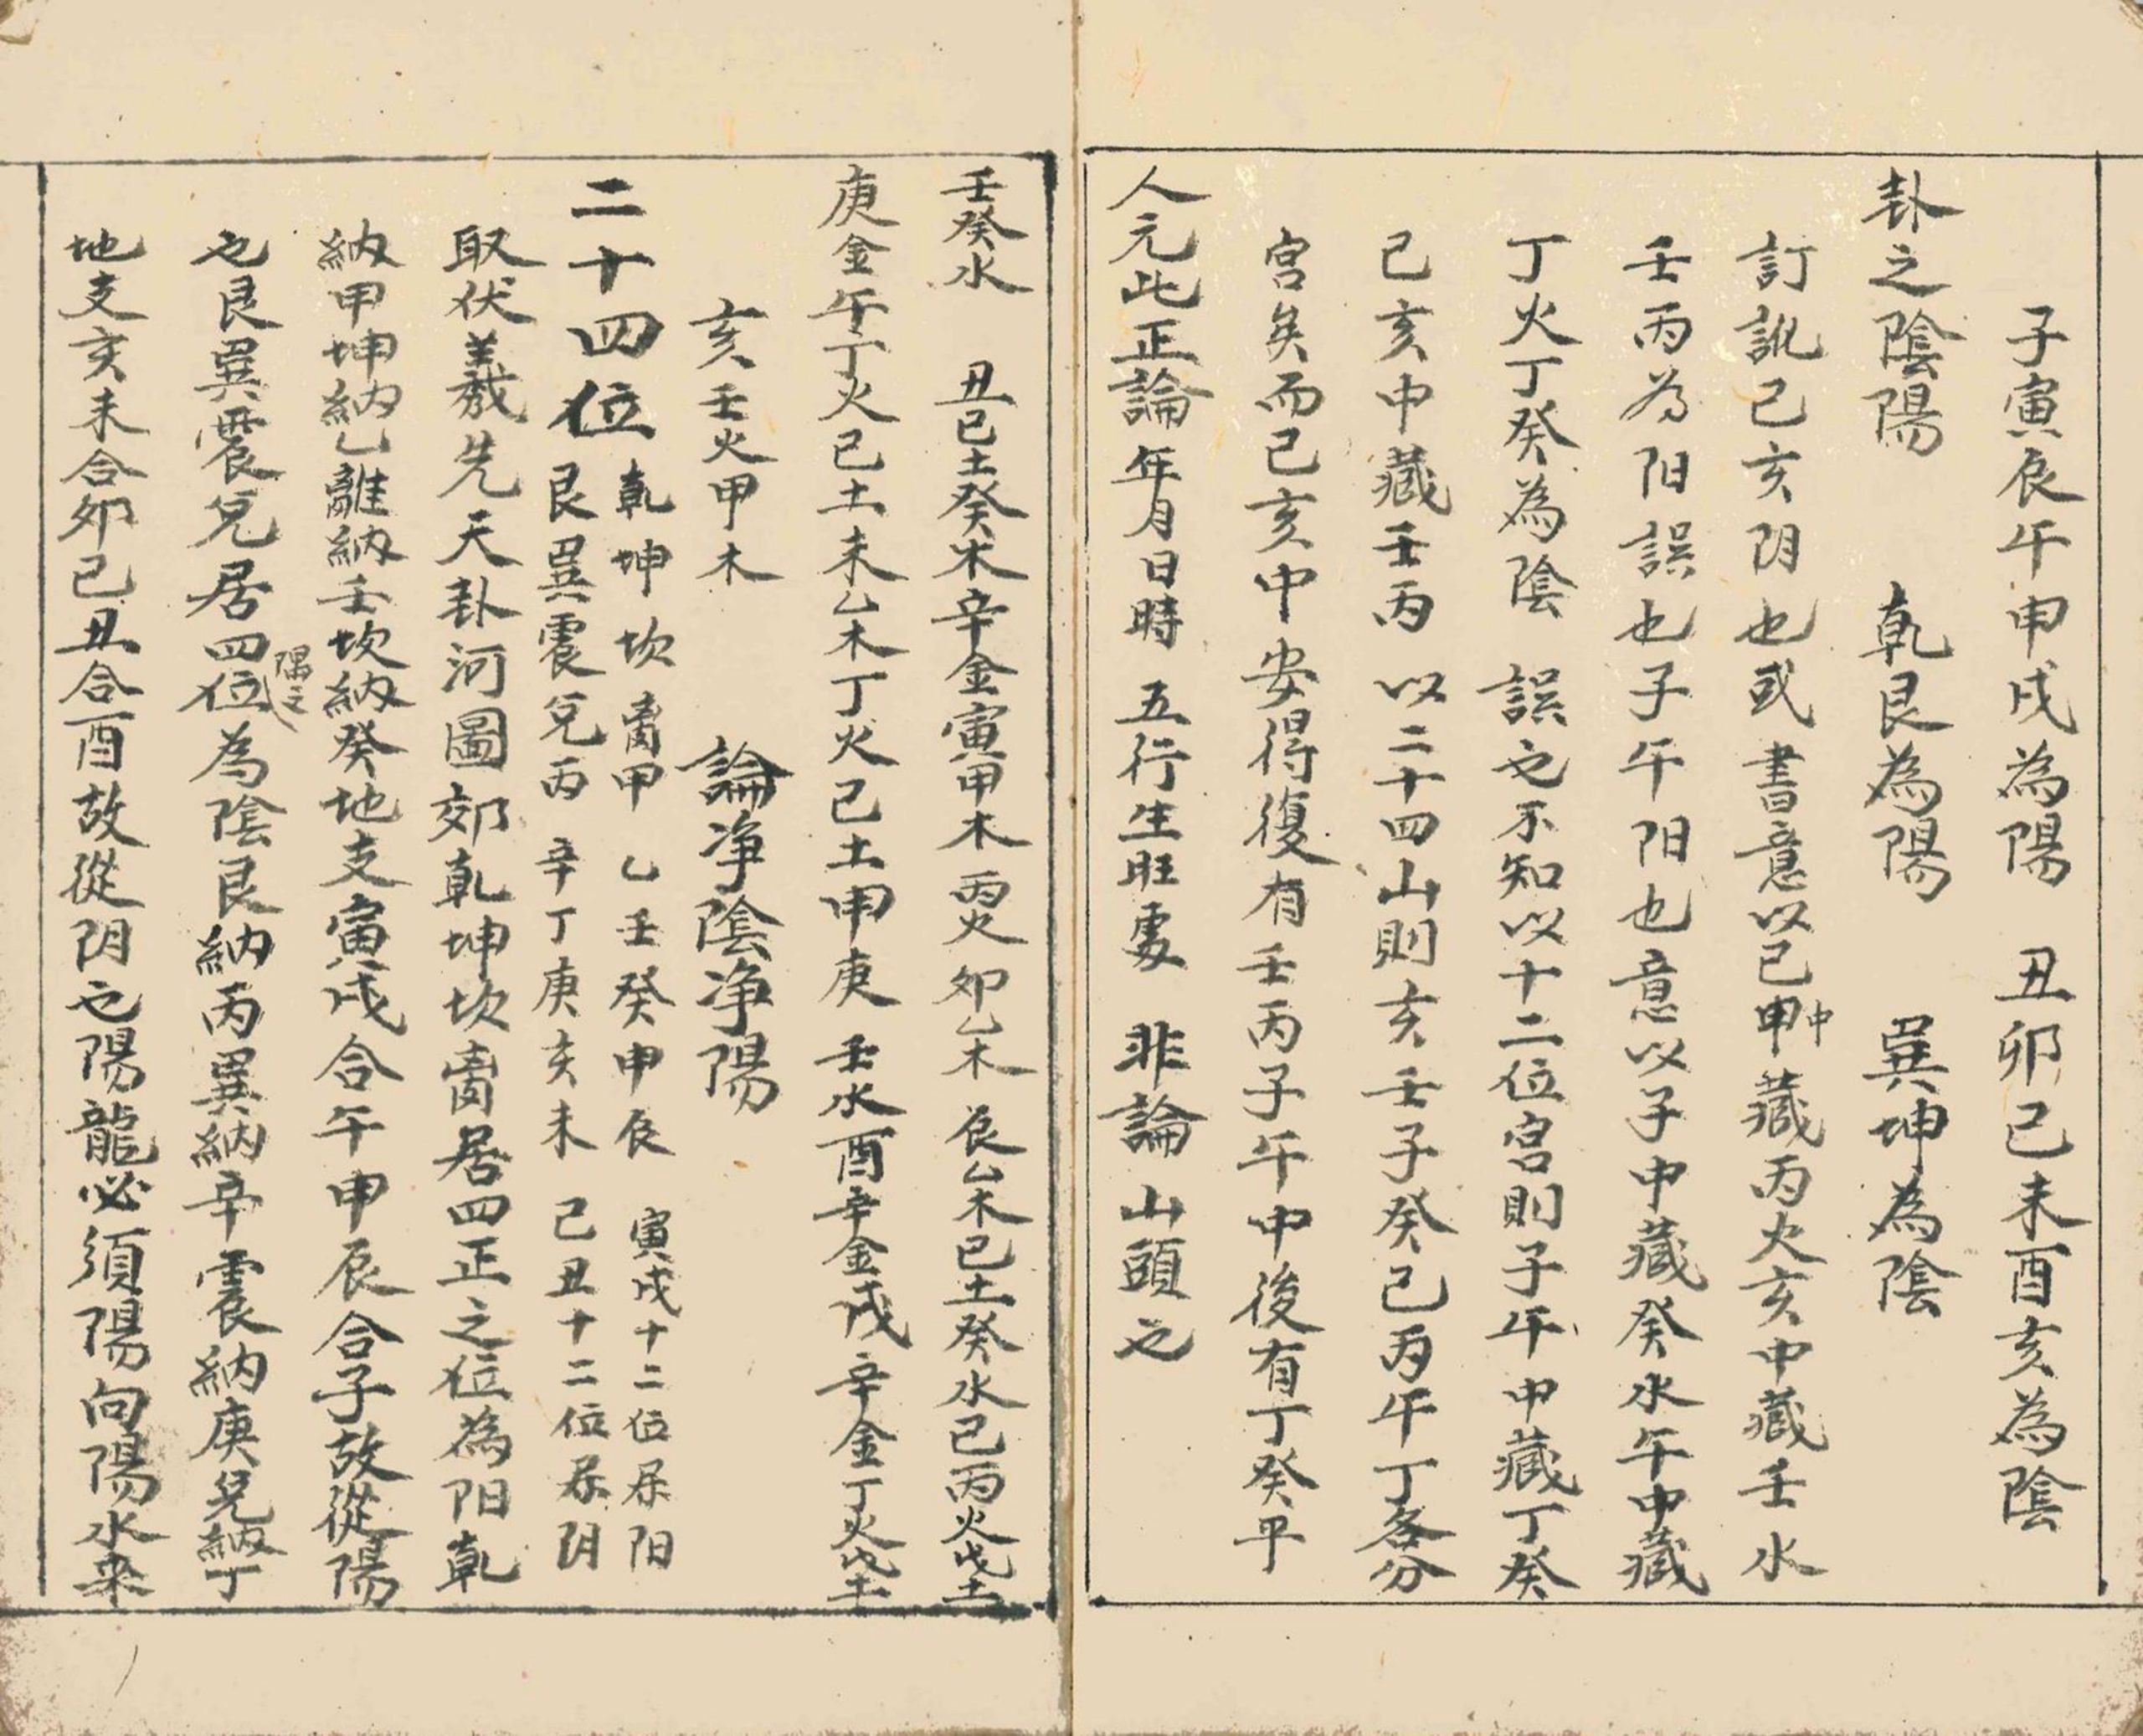 子寅辰午申戌為陽　丑卯巳未酉亥為陰
卦之陰陽　乾艮為陽　巽坤為陰
訂訛已亥阴也或書意以巳申中藏丙火亥中藏壬水
壬丙为阳誤也子午阳也意以子中藏癸水午中藏
丁火丁癸為陰　誤也不知以十二位宮則子午中藏丁癸
已亥中藏壬丙　以二十四山則亥壬子癸巳丙午丁各分
宮矣而已亥中安得復有壬丙子午中後有丁癸乎
人元此正論年月日時　五行生旺䖏　非論山頭也
壬癸水　丑己土癸水辛金寅甲木丙火卯乙木辰乙木巳土癸水巳丙火戊土
庚金午丁火己土未乙木丁火己土申庚　壬水酉辛金戌辛金丁火戊土
亥壬火甲木　論净陰净陽
二十四位
乾坤坎离甲乙壬癸申辰寅戌十二位屬阳
艮巽震兌丙辛丁庚亥未巳丑十二位屬阴
取伏羲先天卦河圖郊乾坤坎离居四正之位為阳乾
納甲坤納乙離納壬坎納癸地支寅戌合午申辰合子故從陽
也艮巽震兌居四位隅之為陰艮納丙巽納辛震納庚兌納丁
地支亥未合卯巳丑合酉故從阴也陽龍必須陽向陽水來